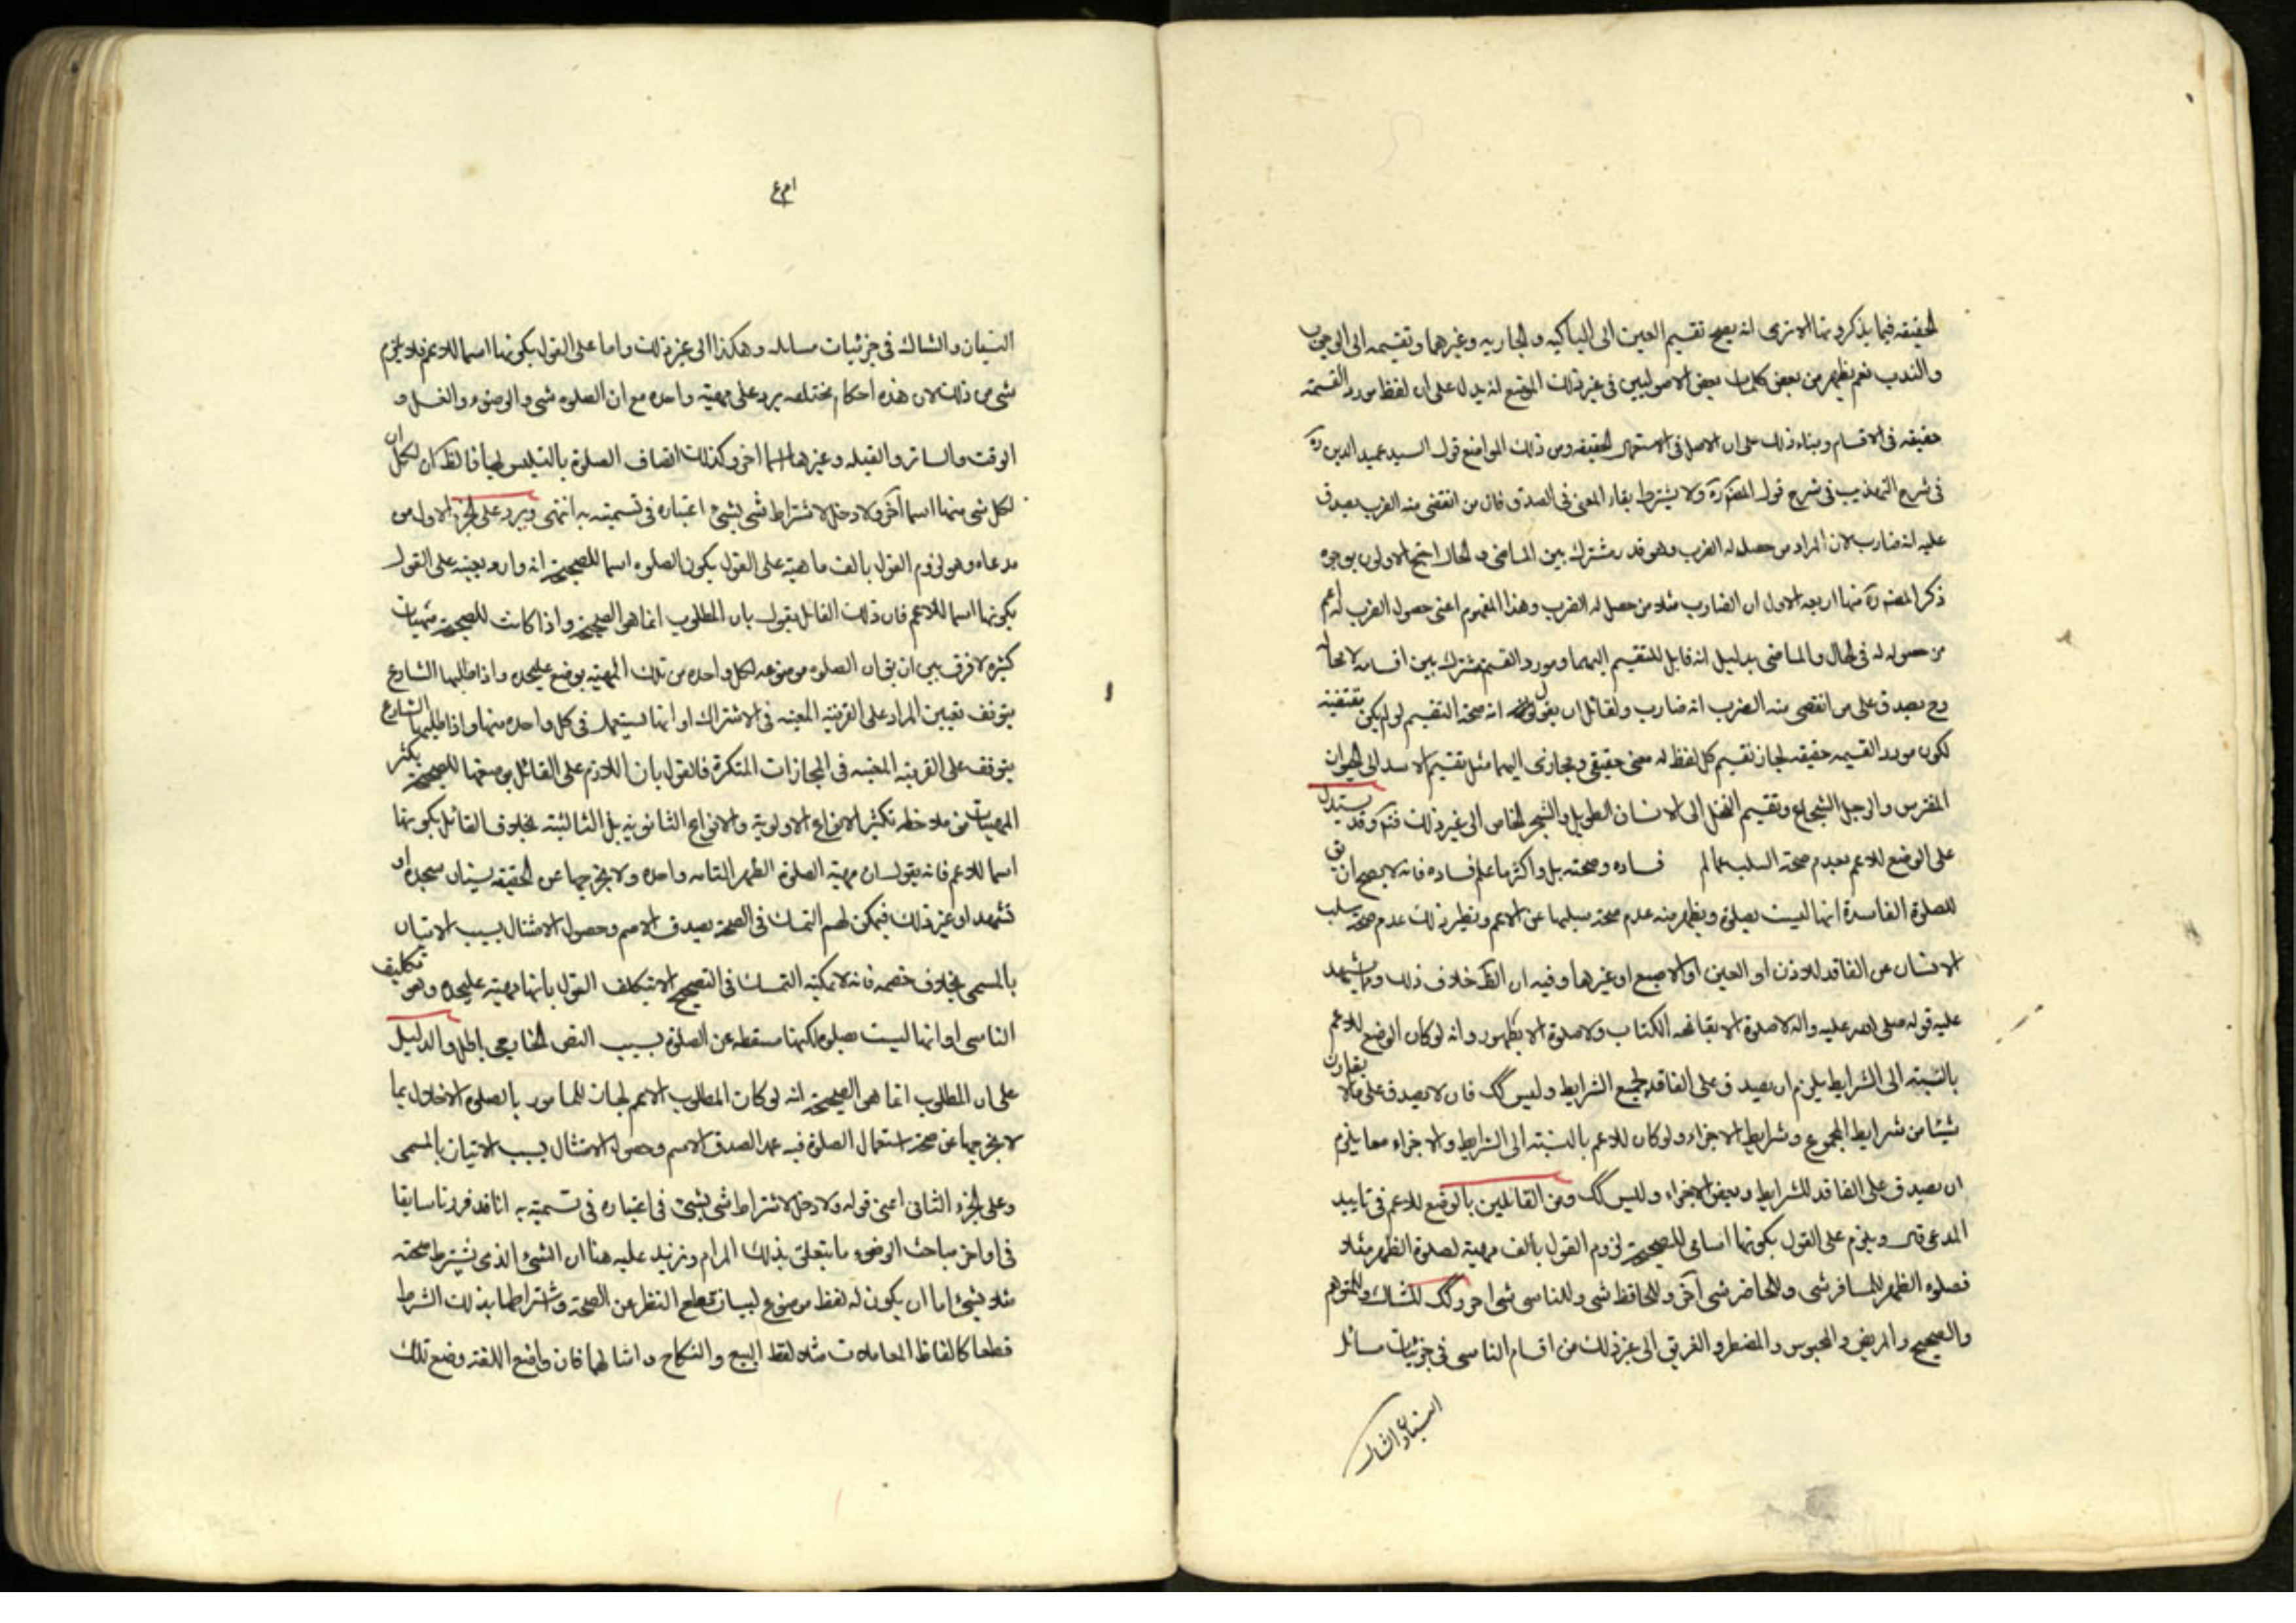 الحقيقه فيما يذكرونها الا ترى انه يصح تقسيم العين الى الباكيه والجاريه وغيرهما وتقسيمه الى الوجوب
والندب نعم يظهر من بعض كلمات بعض الاصوليين فى غير ذلك الموضع انه يدل على ان لفظ مورد القسمة
حقيقه فى الاقسام وبناء ذلك على ان الاصل فى الاستعمال الحقيقه ومن ذلك المواضع قول السيد عميد الدين ره
فى شرح التهذيب فى شرح قول المصنف ره ولا يشترط بقاء المعنى فى الصدق فان من انقضى منه الضرب يصدق
عليه انه ضارب لان المراد من حصل له الضرب وهو قدر مشترك بين الماضى والحال احتج الاولون بوجوه
ذكر المصنف ره منها اربعه الاول ان الضارب مثلا من حصل له الضرب وهذا المفهوم اعنى حصول الضرب له اعم
من حصوله له فى الحال والماضى بدليل انه قابل للتقسيم اليهما ومورد القسمة مشترك بين اقسامه لا محالة
وح يصدق على من انقضى منه الضرب انه ضارب ولقائل ان يقول انه صحة التقسيم لو لم يكن مقتضيه
لكون مورد القسمه حقيقه لجاز تقسيم كل لفظ له معنى حقيقى ومجازى اليهما مثل تقسيم الاسد الى الحيوان
المفترس والرجل الشجاع وتقسيم النخل الى الانسان الطويل والشجر الخاص الى غير ذلك فتم وقد يستدل
على الوضع للاعم بعدم صحة السلب عما لم فساده وصحته بل واكثر ما علم فساده فانه لا يصح ان يق
للصلوة الفاسدة انها ليست بصلوة ويظهر منه عدم صحة سلبها عن الاعم ونظير ذلك عدم صحة سلب
الانسان عن الفاقد للاذن او العين او الاصبع او غيرها وفيه ان الظ خلاف ذلك وما يشهد
عليه قوله صلى الله عليه واله لا صلوة الا بفاتحه الكتاب ولا صلوة الا بطهور وانه لو كان الوضع للاعم
بالنسبته الى الشرايط يلزم ان يصدق على الفاقد لجميع الشرايط وليس كك فان لا يصدق على ما لا يقارن
شيئا من شرايط المجموع وشرايط الاجزاء ولو كان للاعم بالنسبته الى الشرايط والاجزاء معا يلزم
ان يصدق على الفاقد للشرايط وبعض الاجزاء وليس كك ومن القائلين بالوضع للاعم فى تاييد
المدعى قال ويلزم على القول بكونها اسامى للصحيحة لزوم القول بالف مهية لصلوة الظهر مثلا
فصلوه الظهر للمسافر شى وللحاضر شى آخر وللحافظ شى وللناسى شى اخر وكك للشاك وللمتوهم
والصحيح والمريض والمحبوس والمضطر والغريق الى غير ذلك من اقسام الناسى فى جزئيات مسائل
النسيان والشاك
النسيان والشاك فى جزئيات مسايله وهكذا الى غير ذلك واما على القول بكونها اسما للاعم فلا يلزم
شى من ذلك لان هذه احكام مختلفه يرد على مهية واحده مع ان الصلوه شى والوضوء والغسل و
الوقت والساتر والقبله وغيرها اسما اخر وكذلك اتصاف الصلوة بالتلبس بها فالظ ان لكل ان
لكل شى منها اسما آخر ولا دخل لاشتراط شى بشئ اعتباره فى تسميته به انتهى ويرد على الجزء الاول من
مدعاه وهو لزوم القول بالف ماهية على القول بكون الصلوه اسما للصحيحة انه وارد بعينه على القول
بكونها اسما للاعم فان ذلك القائل يقول بان المطلوب انما هو الصحيحة واذا كانت للصحيحة مهيات
كثيره لا فرق بين ان يق ان الصلوه موضوعه لكل واحده من تلك المهية بوضع عليحده واذا طلبها الشارع
يتوقف تعيين المراد على القرينة المعينه فى الاشتراك او انها يستعمل فى كل واحده منها واذا طلبها الشارع
يتوقف على القرينه المعينه فى المجازات المتكثرة فالقول بان اللازم على القائل بوضعها للصحيحة بكثر
المهيات من ملاحظه تكثير الانواع الاولوية والانواع الثانويه بل الثالثيته بخلاف القائل بكونها
اسما للاعم فانه يقول ان مهية الصلوة الظهر التامه واحده ولا يخرجها عن الحقيقه نسيان سجده او
تشهد او غير ذلك فيمكن لهم التمسك فى الصحة بصدق الاسم وحصول الامتثال بسبب الاتيان
بالمسمى بخلاف خصمه فانه لا يمكنه التمسك فى التصحيح الا بتكلف القول بانها مهية عليحده وهو تكليف
الناسى او انها ليست بصلوة لكنها مسقطه عن الصلوة بسبب النص الخارجى باطل والدليل
على ان المطلوب انما هو الصحيحة انه لو كان المطلوب الاعم لجاز للمامور بالصلوة الاخلال بما
لا يخرجها عن صحة استعمال الصلوة فيه عمدا لصدق الاسم وحصول الامتثال بسبب الاتيان بالمسمى
وعلى الجزء الثانى اعنى قوله ولا دخل لاشتراط شى بشئ فى اعتباره فى تسميته به انا قد قررنا سابقا
فى اواخر مباحث الوضوء ما يتعلق بذلك المرام ونزيد عليه هنا ان الشئ الذى يشترط صحته
مثلا بشئ اما ان يكون له لفظ موضوع لبيانه قطع النظر عن الصحة واشتراطها بذلك الشرط
قطعا كالفاظ المعاملات مثلا لفظ البيع والنكاح وامثالهما فان واضع اللغته وضع تلك